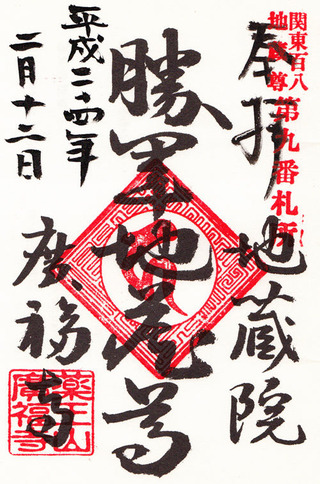 関東百八
地蔵尊
第九番札所
奉拝
地蔵院
勝軍地蔵尊
平成二四年
二月十二日
広福寺
薬王山
廣福寺